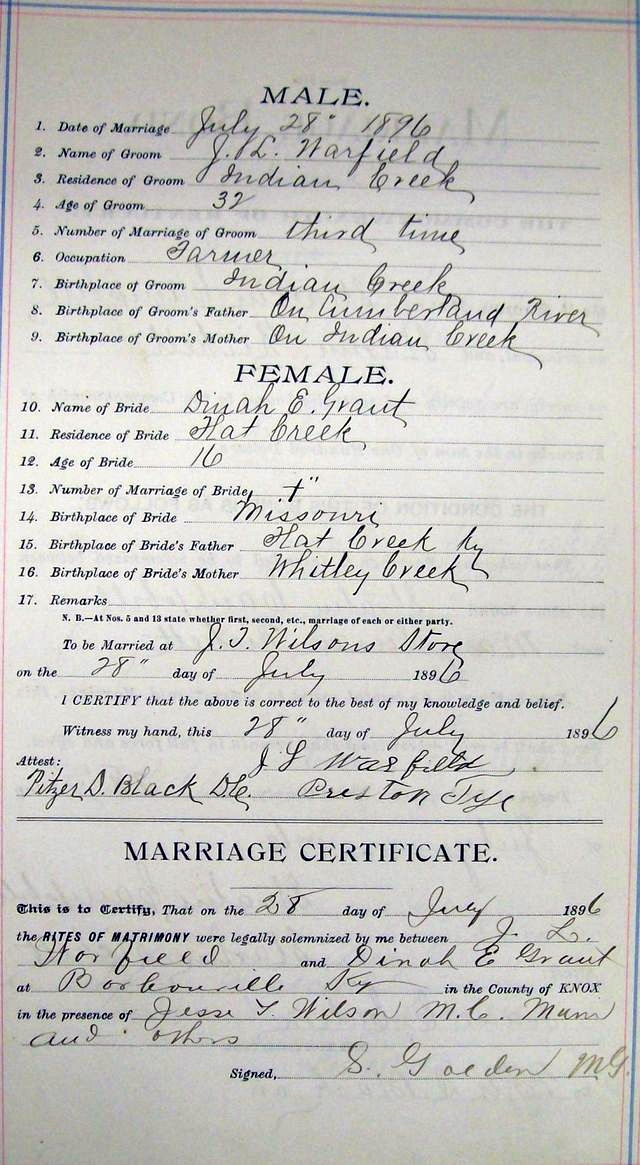 MALE.
1. Date of Marriage July 28" 1896
2. Name of Groom J. L. Warfield
3. Residence of Groom Indian Creek
4. Age of Groom 32
5. Number of Marriage of Groom third time
6. Occupation Farmer
7. Birthplace of Groom Indian Creek
8. Birthplace of Groom's Father On Cumberland River
9. Birthplace of Groom's Mother On Indian Creek
FEMALE.
10. Name of Bride Dinah E. Grant
11. Residence of Bride Flat Creek
12. Age of Bride 16
13. Number of Marriage of Bride
14. Birthplace of Bride Missouri
15. Birthplace of Bride's Father Flat Creek Ky
16. Birthplace of Bride's Mother Whitley Creek
17. Remarks
N. B.—At Nos. 5 and 13 state whether first, second, etc., marriage of each or either party.
To be Married at J. T. Wilsons Store
on the 28" day of July 1896
I CERTIFY that the above is correct to the best of my knowledge and belief.
Witness my hand, this 28" day of July 1896
Attest: J L Warfield
Pitzer D. Black D.C. Preston Tye
MARRIAGE CERTIFICATE.
This is to Certify, That on the 28 day of July 1896
the RITES OF MATRIMONY were legally solemnized by me between J. L.
Worfield and Dinah E Grant
at Barbourville Ky in the County of KNOX
in the presence of Jesse T. Wilson M.C. Mann
and others
Signed, S. Golden MG.